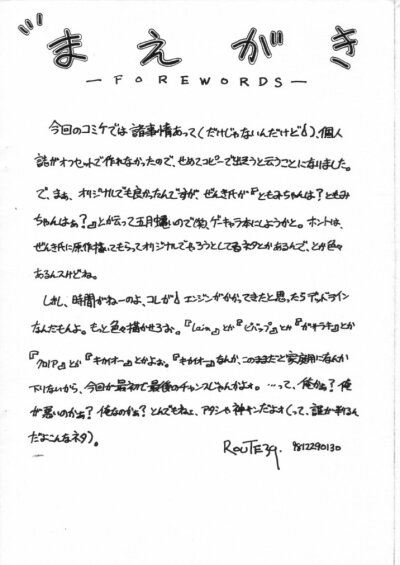 まえがき
—FOREWORDS—
今回のコミケでは諸事情あって(だけじゃないんだけど!)、個人
誌がオフセットで作れなかったので、せめてコピーで出そうと云うことになりました。
で、まぁ、オリジナルでも良かったんですが、ぜんき氏が『ともみちゃんは?ともみ
ちゃんはぁ?』とか云って五月蠅いので(笑)、ゲーキャラ本にしようかと。ホントは、
ぜんき氏に原作描いてもらってオリジナルでやろうとしてるネタとかあるんで、とか色々
あるんスけどね。
しかし、時間がねーのよ、コレが!エンジンがかかってきたと思ったらデッドライン
なんだもんよ。もっと色々描かせろよ。『Lain』とか『ビバップ』とか『ガサラキ』とか
『クロノア』とか『キカイオー』とかよぉ。『キカイオー』なんか、このままだと家庭用になんか
下りないから、今回が最初で最後のチャンスじゃんかよォ。…って、俺かぁ?俺
が悪いのかぁ?俺なのかぁ?とんでもねェ、アタシャ神キンだよォ(って、誰が判るん
だよこんなネタ)。
ROUTE39. 9812290130